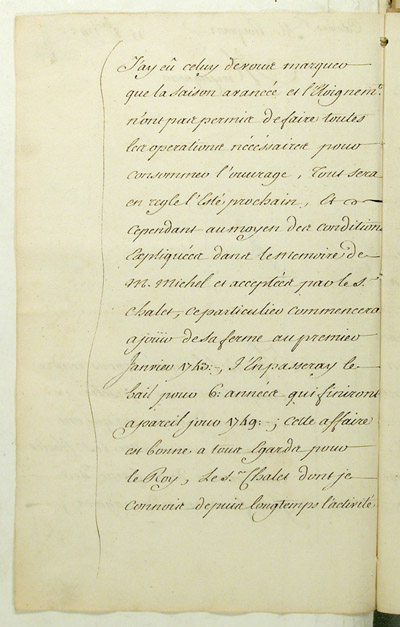 J'ay eû celuy de vous marquer
que la Saison avancée et l'Eloignem.t
n'ont pas permis de faire toutes
les operations nécéssaires pour
consommer l'ouvrage, Tout sera
en regle l'Eté prochain, Et
cependant au moyen des conditions
Expliquées dans le memoire de
M. Michel et acceptées par le S.r
Chalet, ce particulier commencera
a joüir de sa ferme au premier
Janvier 1743., J'En passeray le
bail pour 6. années qui finiront
a pareil jour 1749.; Cette affaire
est bonne a tous Egards pour
le Roy, Le S.r Chalet dont je
connois depuis longtemps l'activité